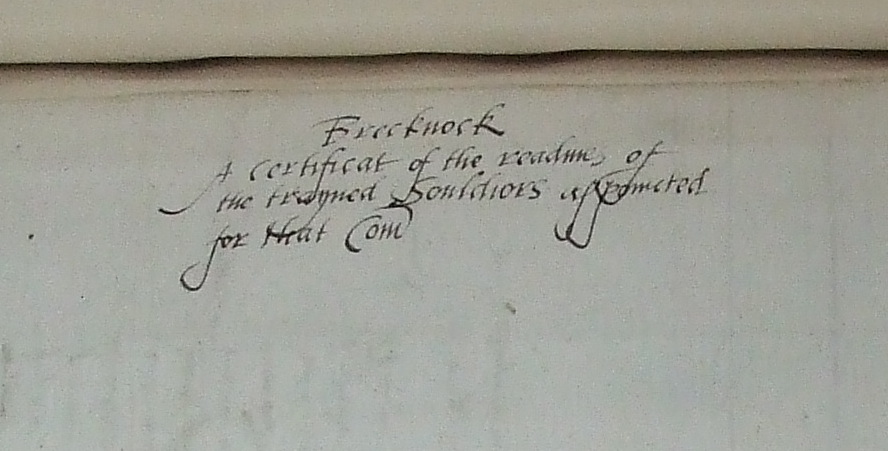 Brecknock
A certificat of the readines of
the trayned Souldiors appoincted
for that Com